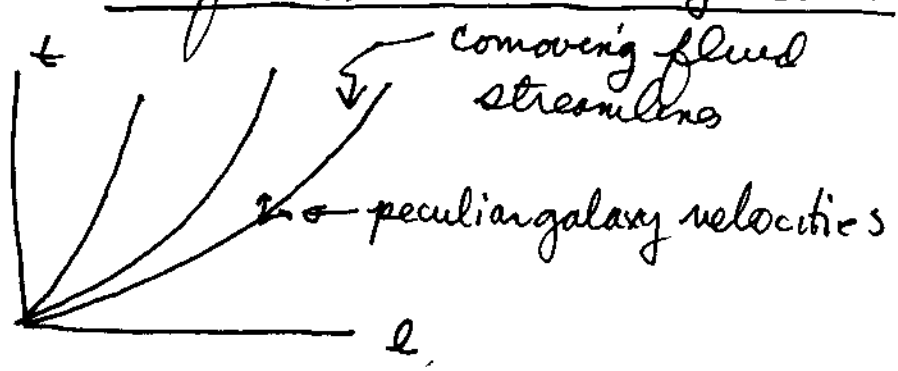 t
comoving fluid
streamlines
peculiar galaxy velocities
l